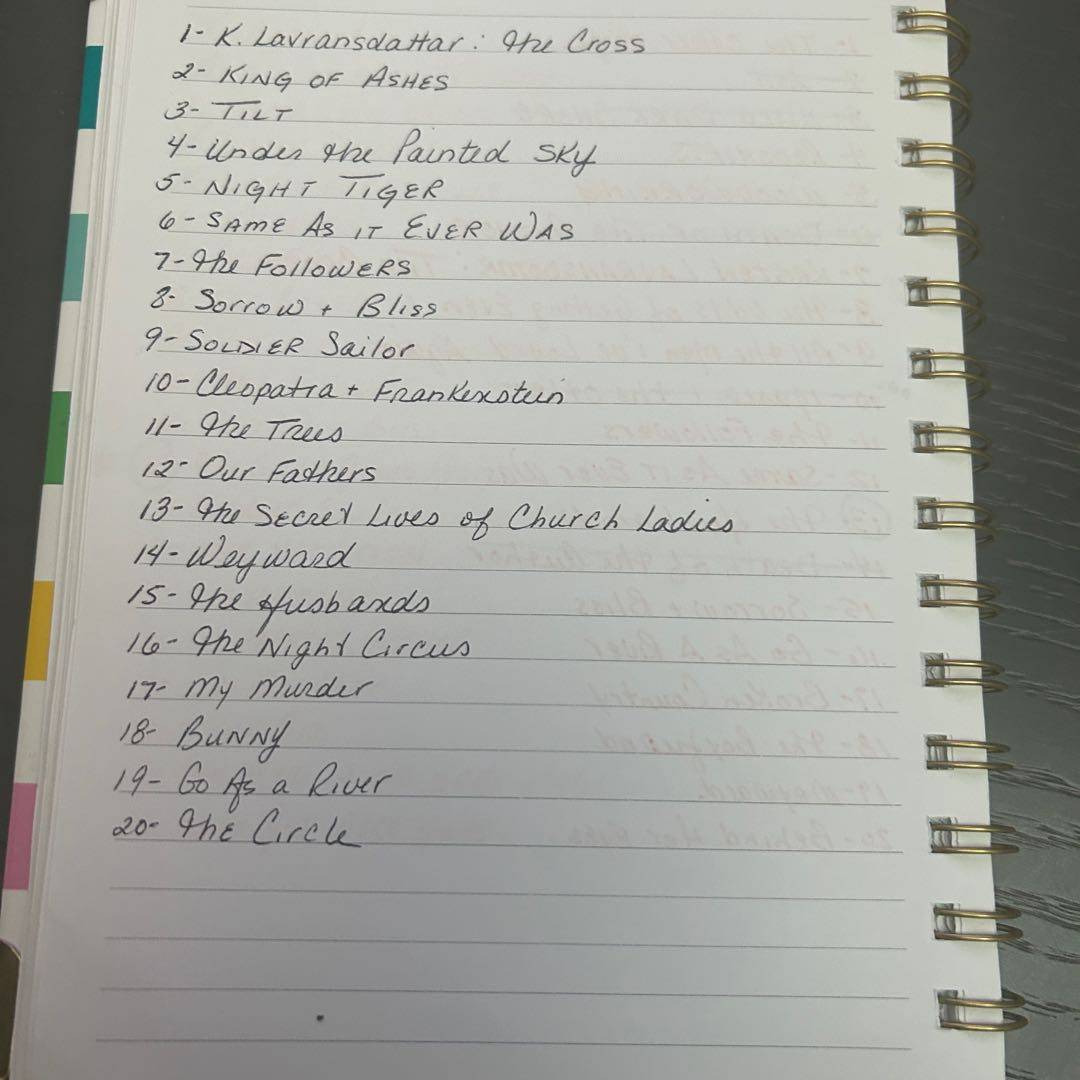 1- K. Lavransdattar: The Cross
2- KING OF ASHES
3- TILT
4- Under the Painted Sky
5- NIGHT TIGER
6- SAME AS IT EVER WAS
7- The Followers
8- Sorrow + Bliss
9- SOLDIER Sailor
10- Cleopatra + Frankenstein
11- The Trees
12- Our Fathers
13- The Secret Lives of Church Ladies
14- Weyward
15- The Husbands
16- The Night Circus
17- My Murder
18- BUNNY
19- Go As a River
20- The Circle